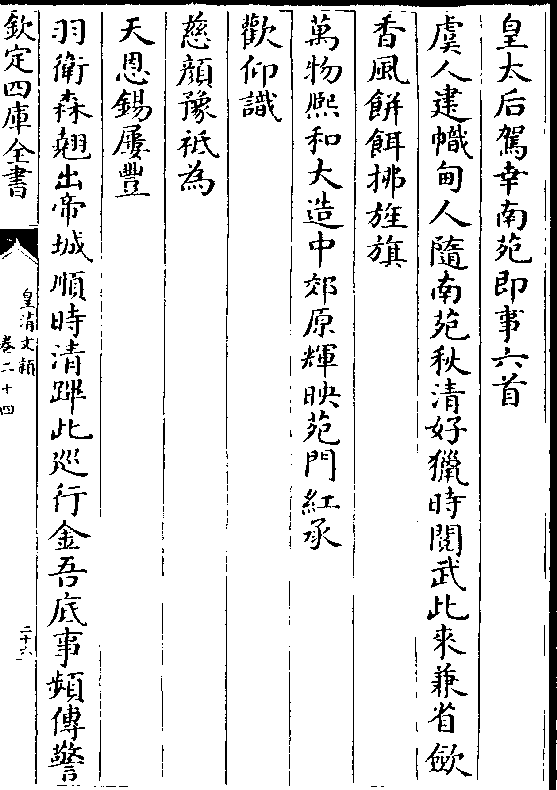 皇太后駕幸南苑即事六首
虞人建幟甸人隨南苑秋清好獵時閱武此來兼省斂
香風餅餌拂旌旗
萬物熈和大造中郊原輝映苑門紅承
歡仰識
慈顔豫祗為
天恩錫屢豐
羽衛森翹出帝城順時清蹕此廵行金吾底事頻傳警
欽定四庫全書
皇清文穎
卷二十四
二十六